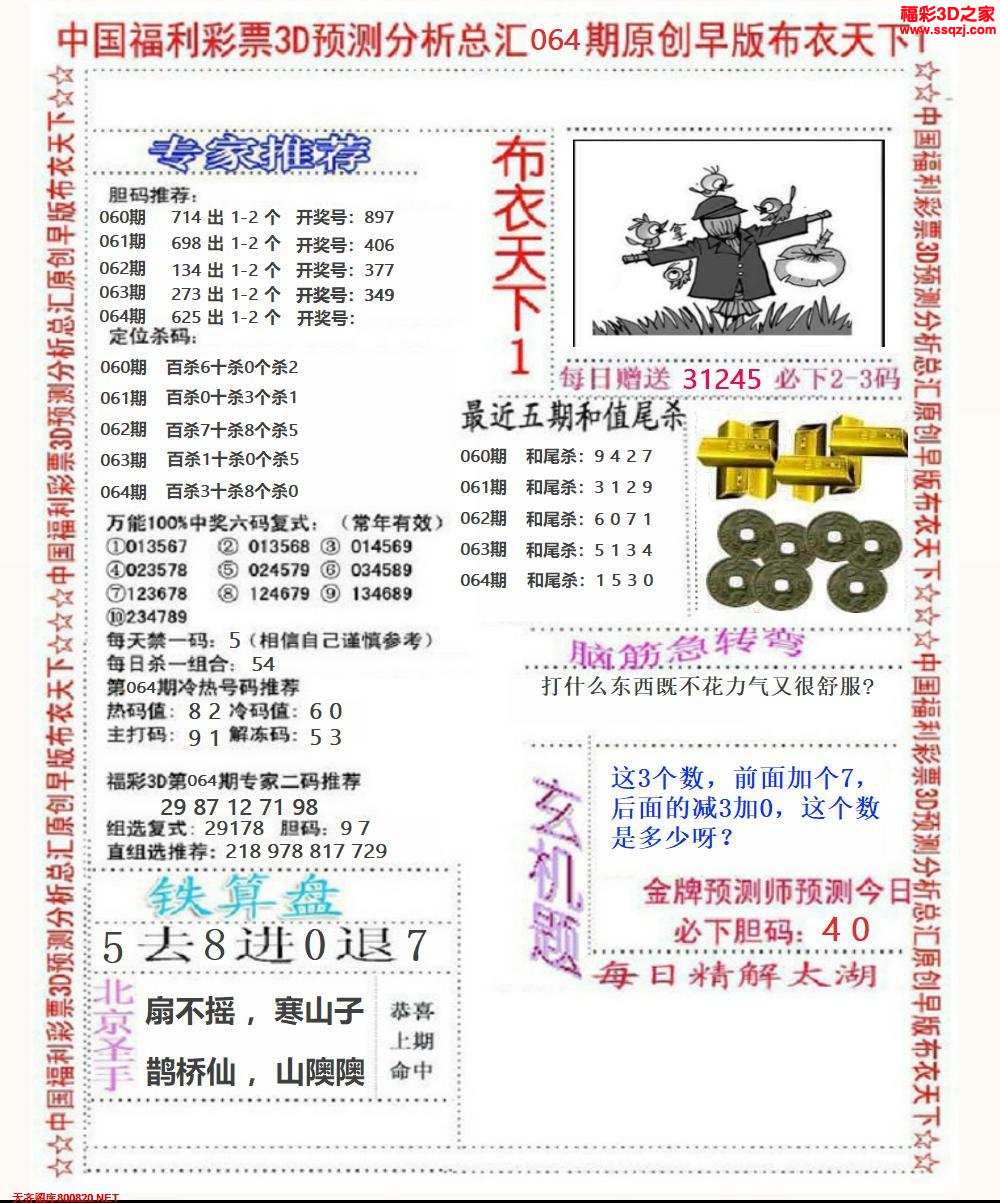 福彩3D之家
www.ssqzj.com
中国福利彩票3D预测分析总汇064期原创早版布衣天下1
☆☆中国福利彩票3D预测分析总汇原创早版布衣天下☆☆中国福利彩票3D预测分析总汇原创早版布衣天下☆☆
专家推荐
胆码推荐:
060期 714 出 1-2 个 开奖号: 897
061期 698 出 1-2 个 开奖号: 406
062期 134 出 1-2 个 开奖号: 377
063期 273 出 1-2 个 开奖号: 349
064期 625 出 1-2 个 开奖号:
定位杀码:
060期 百杀6十杀0个杀2
061期 百杀0十杀3个杀1
062期 百杀7十杀8个杀5
063期 百杀1十杀0个杀5
064期 百杀3十杀8个杀0
万能100%中奖六码复式: (常年有效)
①013567 ② 013568 ③ 014569
④023578 ⑤ 024579 ⑥ 034589
⑦123678 ⑧ 124679 ⑨ 134689
⑩234789
每天禁一码: 5(相信自己谨慎参考)
每日杀一组合: 54
第064期冷热号码推荐
热码值: 8 2 冷码值: 6 0
主打码: 9 1 解冻码: 5 3
福彩3D第064期专家二码推荐
29 87 12 71 98
组选复式: 29178 胆码: 9 7
直组选推荐: 218 978 817 729
铁算盘
5去8进0退7
北京圣手
扇不摇，寒山子
鹊桥仙，山隩隩
恭喜
上期
命中
布衣天下1
拿
每日赠送 31245 必下2-3码
最近五期和值尾杀
060期 和尾杀: 9 4 2 7
061期 和尾杀: 3 1 2 9
062期 和尾杀: 6 0 7 1
063期 和尾杀: 5 1 3 4
064期 和尾杀: 1 5 3 0
脑筋急转弯
打什么东西既不花力气又很舒服?
玄机题
这3个数，前面加个7，
后面的减3加0，这个数
是多少呀？
金牌预测师预测今日
必下胆码: 4 0
每日精解太湖
☆☆中国福利彩票3D预测分析总汇原创早版布衣天下☆☆中国福利彩票3D预测分析总汇原创早版布衣天下☆☆
天齐图库800820.NET